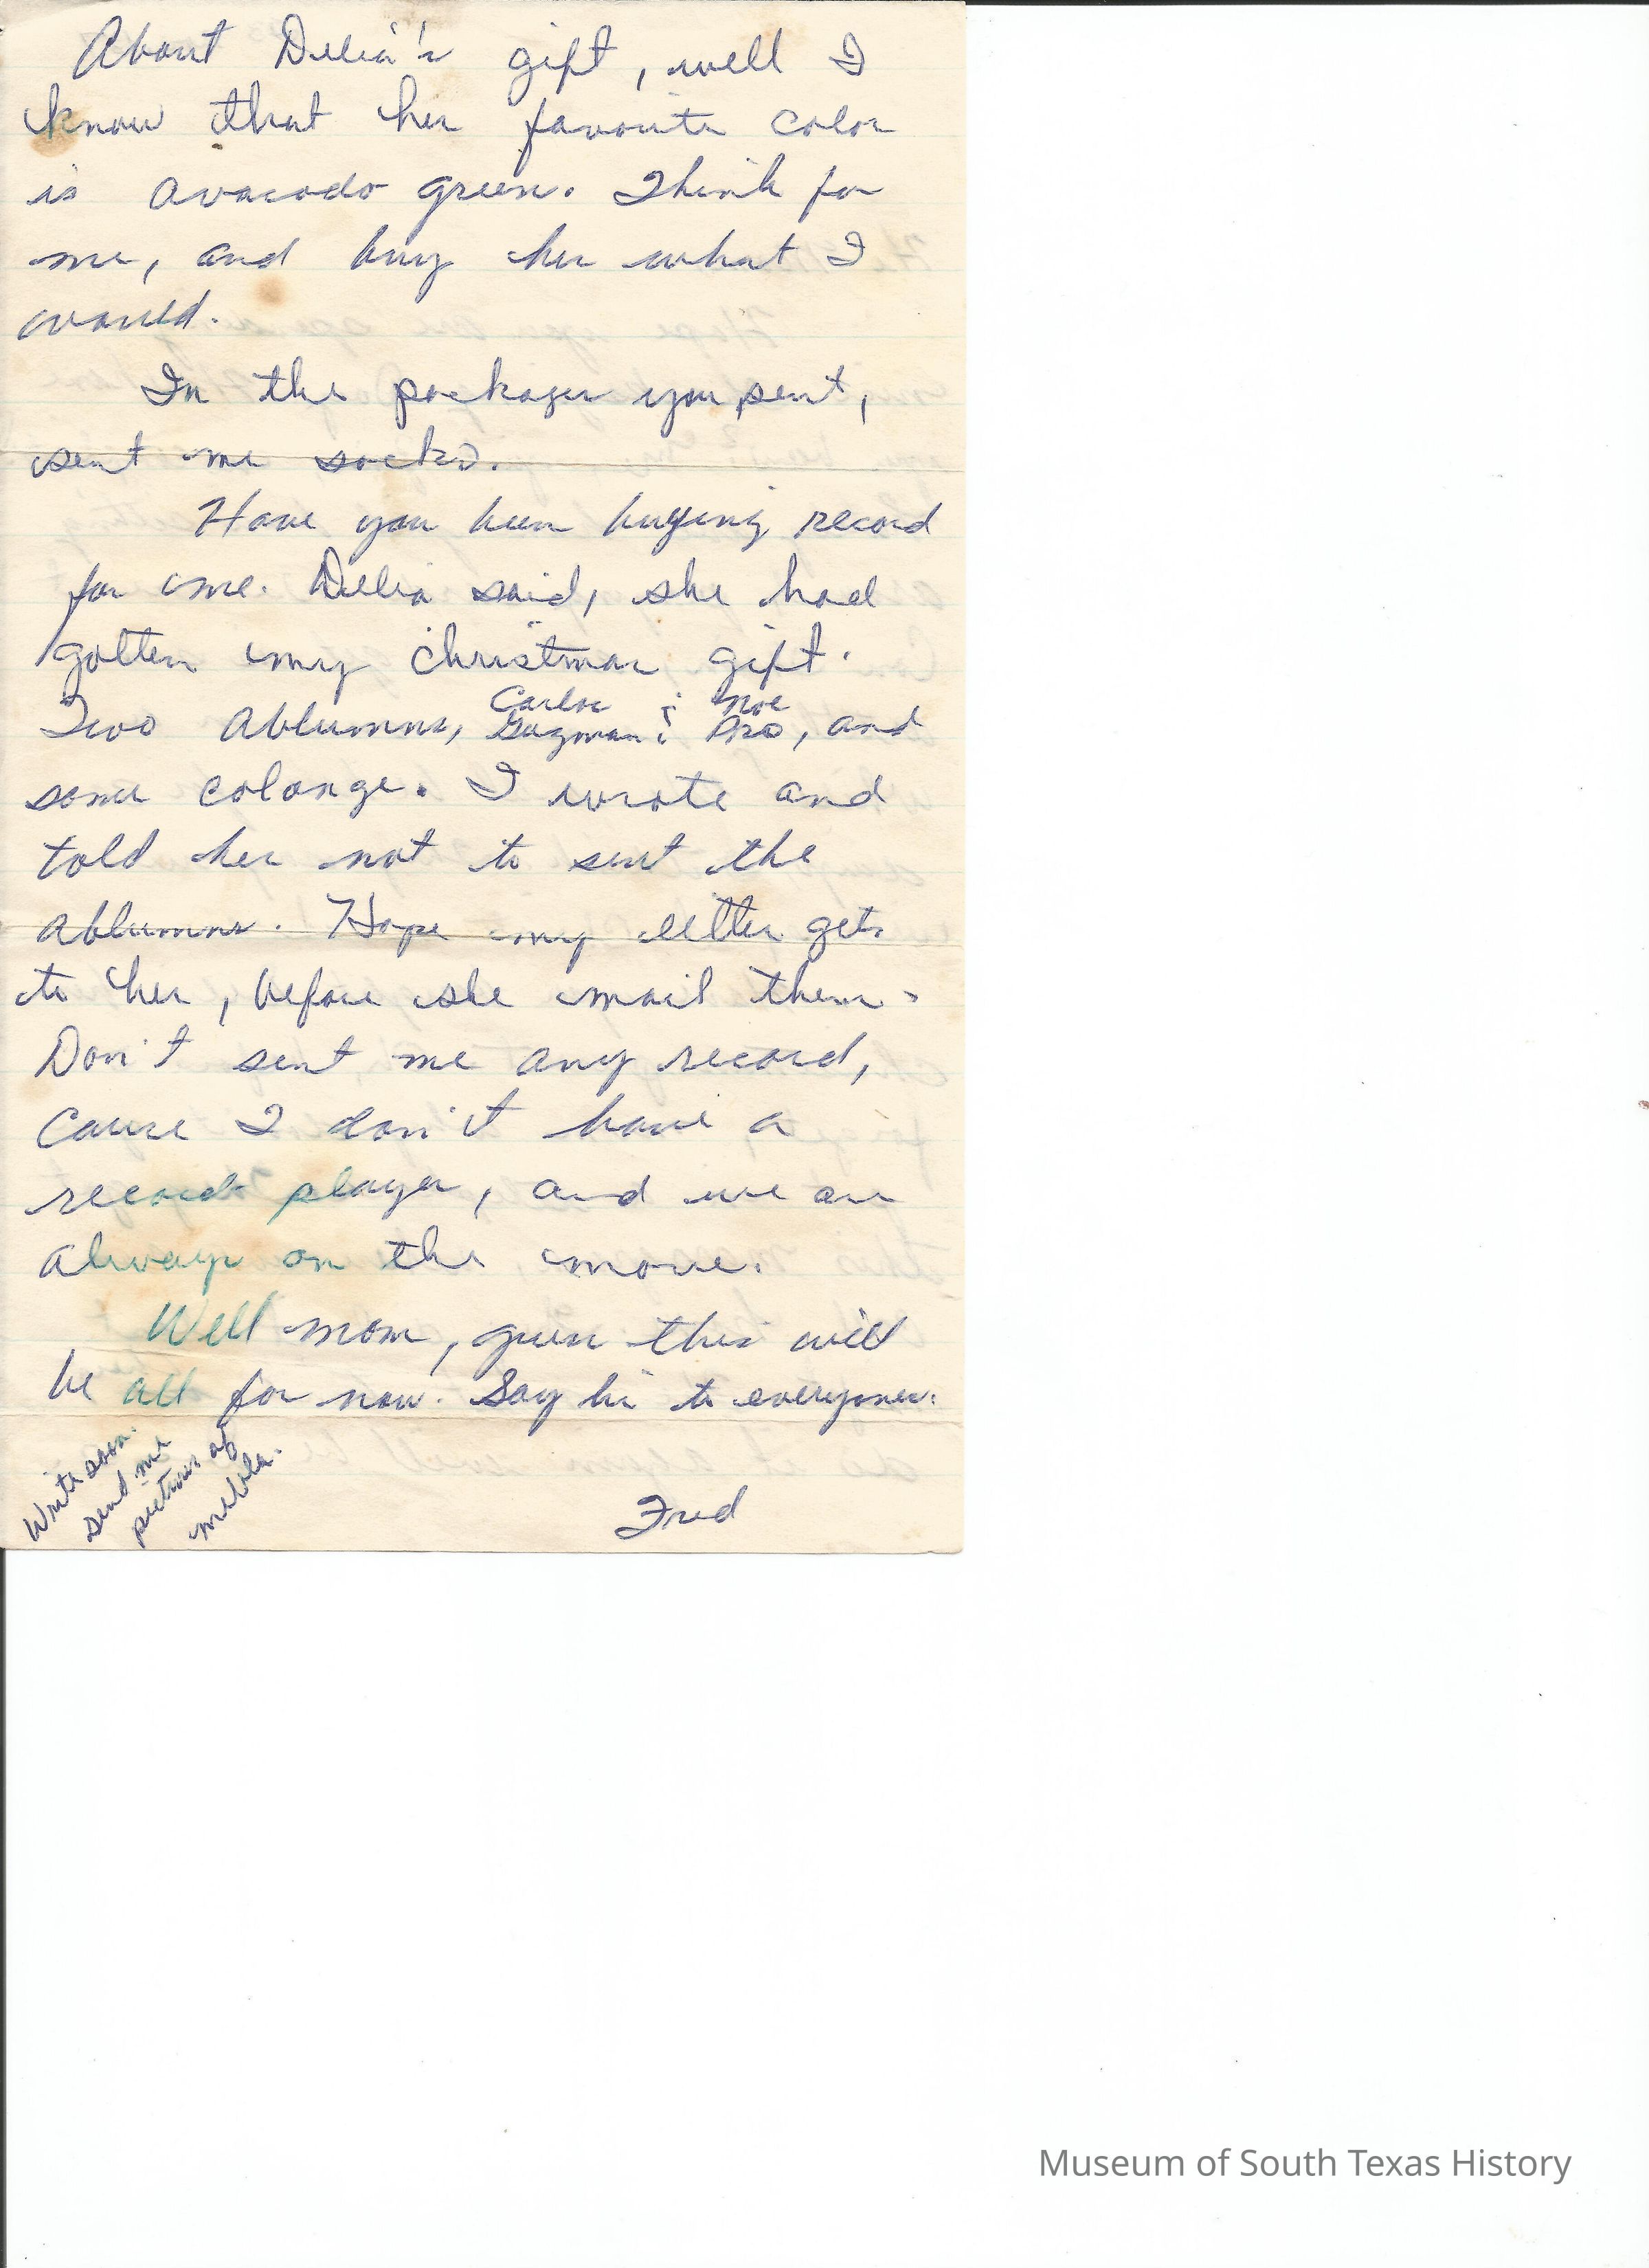 About Delia's gift, well I
know that her favorite color
is avacodo green. Think for
me, and buy her what I
would.
In the packages you sent,
sent me socks.
Have you been buying record
for me. Delia said, she had
gotten my christmas gift.
Two Ablumns, Carlos Guzman & Noe Pro, and
some colonge. I wrote and
told her not to sent the
ablumns. Hope my letter gets
to her, before she mail them.
Don't sent me any record,
Cause I don't have a
record player, and we are
always on the move.
Well mom, guess this will
be all for now. Say hi to everyones.
Write soon.
Send me
pictures of
melba.
Fred
Museum of South Texas History